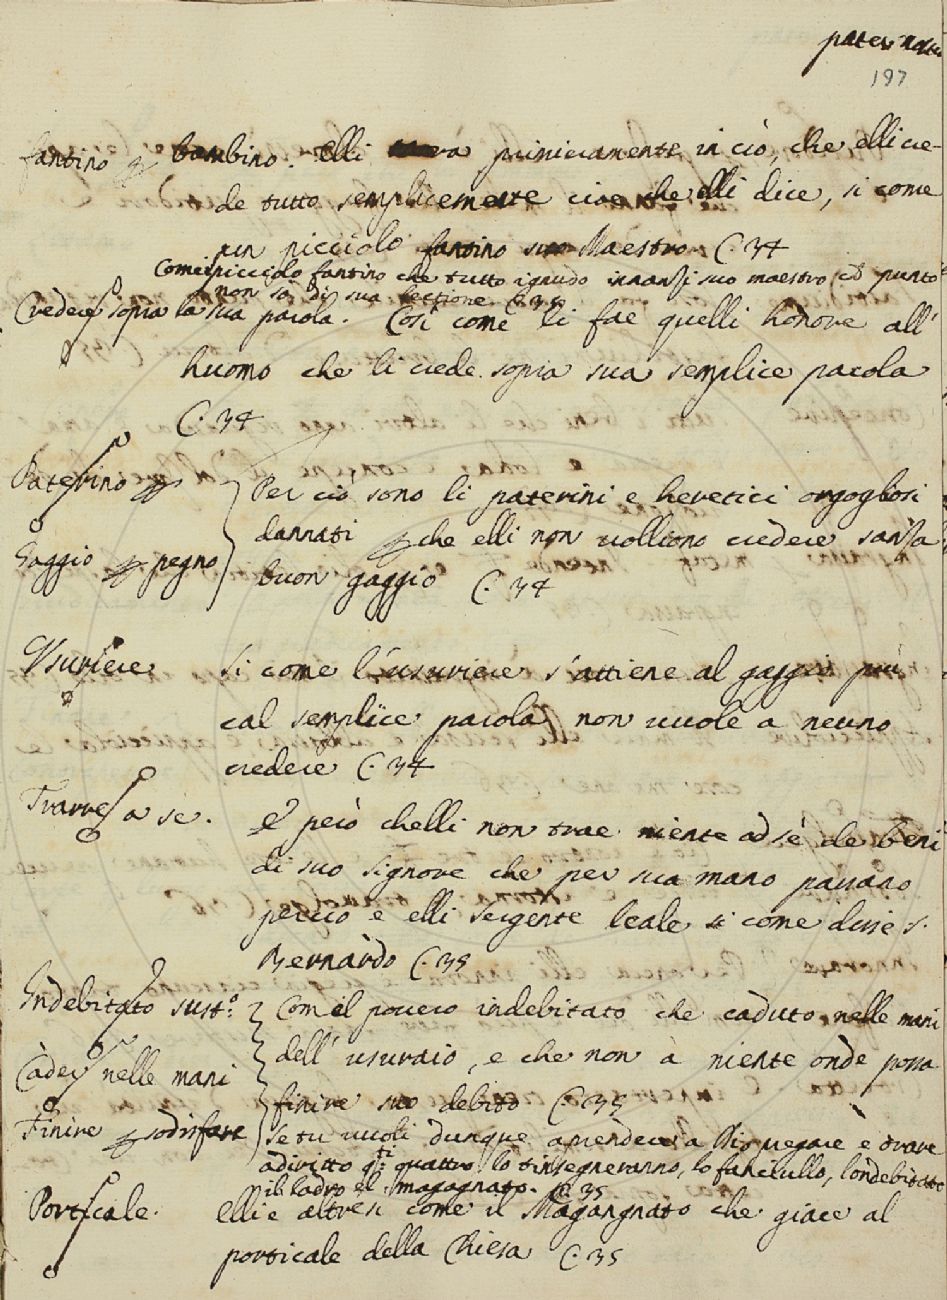 pater nostro
197
fantino p bambino. Elli ora primieramente in ciò, che elli cre-
de tutto semplicemente cioe che elli dice, si come
un picciolo fantino suo Maestro C. 34
Come il picciolo fantino che tutto ignudo innanzi suo maestro ed punto
non sà di sua lectione. C. 35
Credere sopra la sua parola. Così come li fae quelli honore all'
huomo che li crede sopra sua semplice parola
C. 34
Paterino p
Per ciò sono li paterini e heretici orgogliosi
dannati p che elli non volliono credere sanza
Gaggio p pegno
buon gaggio C. 34
Usuriere
Si come l'usuriere s'attiene al gaggio più
cal semplice parola non vuole a neuno
credere C. 34
Trarre a se.
E però chelli non trae niente ad sè de beni
di suo Signore che per sua mano passano
perciò e elli sergente leale si come disse S.
Bernardo C. 35
Indebitato sust.o
Com el povero indebitato che caduto nelle mani
dell'usuraio, e che non à niente onde possa
Cader nelle mani
finire suo debito C. 35
Finire p sodisfare
Se tu vuoli dunque aprendere a Dio pregare e orare
adiritto q.ti quattro lo t'insegneranno, lo fanciullo, l'ondebitato
il ladro el magagnato. C. 35
Porticale.
Elli e altresi come il Magangnato che giace al
porticale della Chiesa C. 35